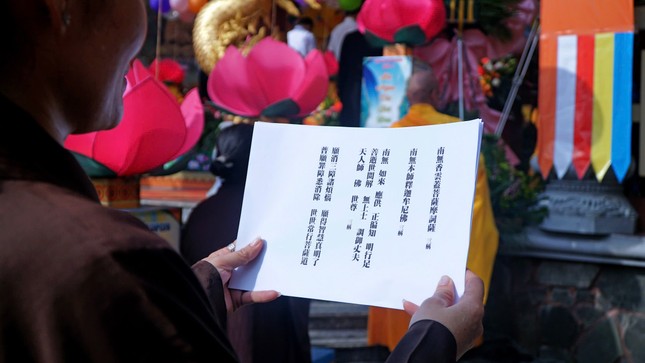 南無香雲蓋菩薩摩訶薩 三稱
南無本師釋迦牟尼佛 三稱
南無 如來 應供 正徧知 明行足
善逝世間解 無上士 調御丈夫
天人師 佛 世尊 三稱
願消三障諸煩惱 願得智慧真明了
普願罪障悉消除 世世常行菩薩道